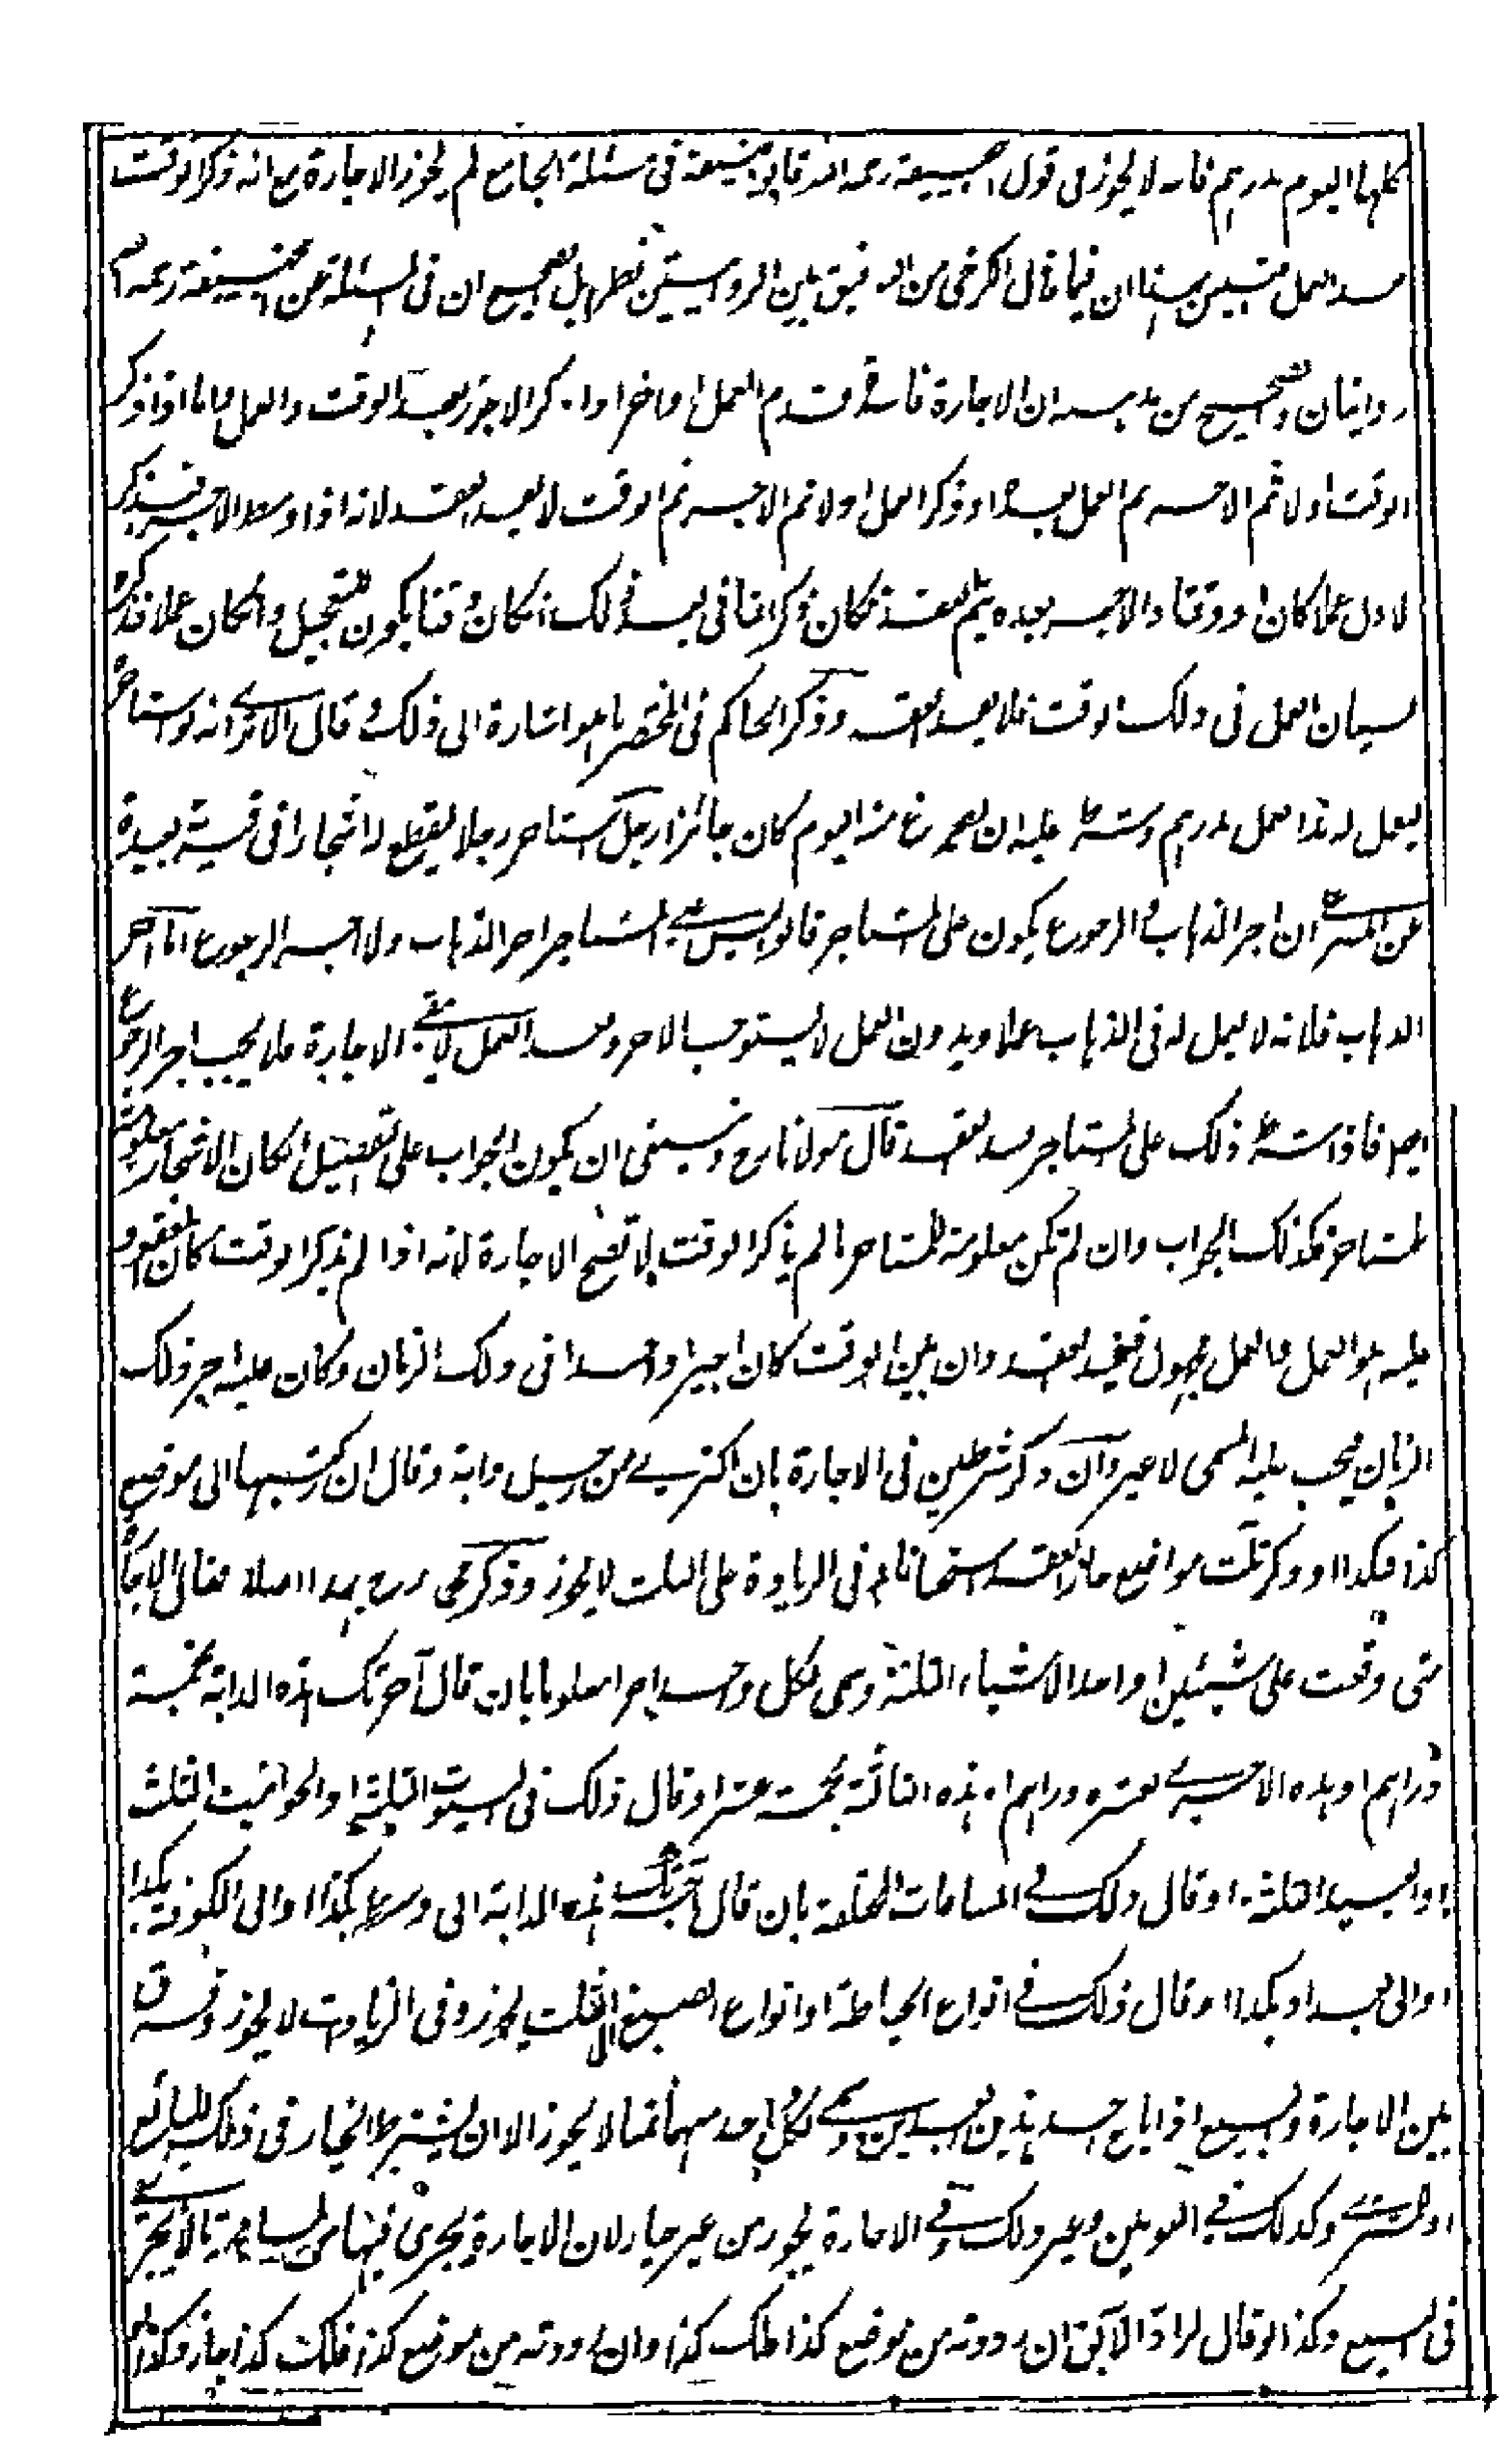 كلها اليوم بدرهم فانه لا يجوز فى قول ابيحنيفة رحمه الله فابو حنيفة فى مسئلة الجامع لم يجوز الاجارة مع انه ذكر الوقت
بعد العمل فتبين بهذا ان فيما قال الكرخى من التوفيق بين الروايتين نظرا بل الصحيح ان فى المسئلة عن ابيحنيفة رحمه الله
روايتان والصحيح من مذهبه ان الاجارة فاسدة قدم العمل او اخر اذا ذكر الاجر بعد الوقت والعمل فاما اذا ذكر
الوقت اولا ثم الاجر ثم العمل بعده او ذكر العمل اولا ثم الاجر ثم الوقت لا يفسد العقد لانه اذا وسط الاجر فبذكر
الاول عملا كان او وقتا والاجر بعده يتم العقد فكان ذكر الثانى بعد ذلك ان كان وقتا يكون للتعجيل وان كان عملا فذكره
لبيان العمل فى ذلك الوقت فلا يفسد العقد وذكر الحاكم فى المختصر ما هو اشارة الى ذلك قال الا ترى انه لو استاجره
ليعمل له هذا العمل بدرهم وشرط عليه ان يفرغ منه اليوم كان جائزا رجل استاجر رجلا ليقطع له اشجارا فى قرية بعيدة
عن المصر ان اجر الذهاب والرجوع يكون على المستاجر قالوا ليس على المستاجر اجر الذهاب ولا اجر الرجوع اما اجر
الذهاب فلانه لا يعمل له فى الذهاب عملا وبدون العمل لا يستوجب الاجر وبعد العمل لا تبقى الاجارة فلا يجب اجر الرجوع
ايضا فاذا شرط ذلك على المستاجر فسد العقد قال مولانا رح وينبغى ان يكون الجواب على التفصيل ان كان الاشجار معلومة
للمستاجر فكذلك الجواب وان لم تكن معلومة للمستاجر ما لم يذكر الوقت لا تصح الاجارة لانه اذا لم يذكر الوقت كان المعقود
عليه هو العمل والعمل مجهول فيفسد العقد وان بين الوقت كان اجيرا واحدا فى ذلك الزمان وكان عليه اجر ذلك
الزمان فيجب عليه المسمى لا غير وان ذكر شرطين فى الاجارة بان اكترى من رجل دابة وقال ان ركبتها الى موضع
كذا فبكذا او ذكر ثلث مواضع جاز العقد استحسانا ثم فى الزيادة على الثلث لا يجوز وذكر محمد رح لهذا اصلا فقال الاجارة
متى وقعت على شيئين او احد الاشياء الثلثة وسمى لكل واحد اجرا معلوما بان قال آجرتك هذه الدابة بخمسة
دراهم او هذه الاخرى بعشرة دراهم او هذه الثالثة بخمسة عشر او قال ذلك فى البيوت الثلثة او الحوانيت الثلث
او العبيد الثلثة او قال ذلك فى المسافات المختلفة بان قال آجرتك هذه الدابة الى واسط بكذا او الى الكوفة بكذا
او الى بغداد بكذا او قال ذلك فى انواع الخياطة او انواع الصبغ الى الثلث يجوز وفى الزيادة لا يجوز وفرق
بين الاجارة والبيع اذا باع احد هذين العبدين وسمى لكل واحد منهما ثمنا لا يجوز الا ان يشترط الخيار فى ذلك للبائع
او للمشترى وكذلك فى الثوبين وغير ذلك وفى الاجارة يجوز من غير خيار لان الاجارة يجرى فيها من المسامحة ما لا يجرى
فى البيع وكذا لو قال لراد الآبق ان رددته من موضع كذا فلك كذا وان رددته من موضع كذا فلك كذا جاز وكذا لو